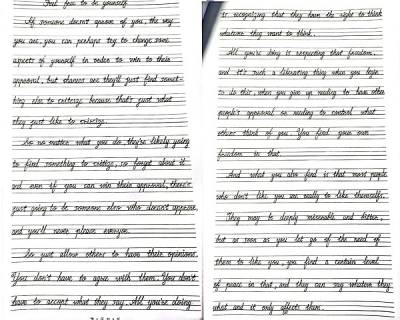 Feel free to be yourself
If someone doesn't aprove of you, the way
you are, you can perhaps try to change some
aspect of yourself in order to win to their
approval, but chances are they'll just find somet-
hing else to critcize because that's just what
they just like to criticize.
So no matter what you do they're likely going
to find something to critize, so forget about it
and even if you can win their approval, there's
just going to be someone else who doesn't approve,
and you'll never please everyon.
So just allow others to have their opinions.
You don't have to agree with them. You don't
have to accept what they say. All you're doing
is recognizing that they have the right to think
whatever they want to think.
All you're doing is respecting that freedom.
and it's such a liberating thing when you begin
to do this, when you give up needing to have other
people's approval or needing to control what
others think of you. You find your own
freedom in that.
And what you also find is that most people
who don't like you are really to like themselfs.
They may be deeply miserable and bitter,
but as soon as you let go of the need of
them to like you, you find a certain level
of peace in that, and they can say whatever they
what and it only affects them.